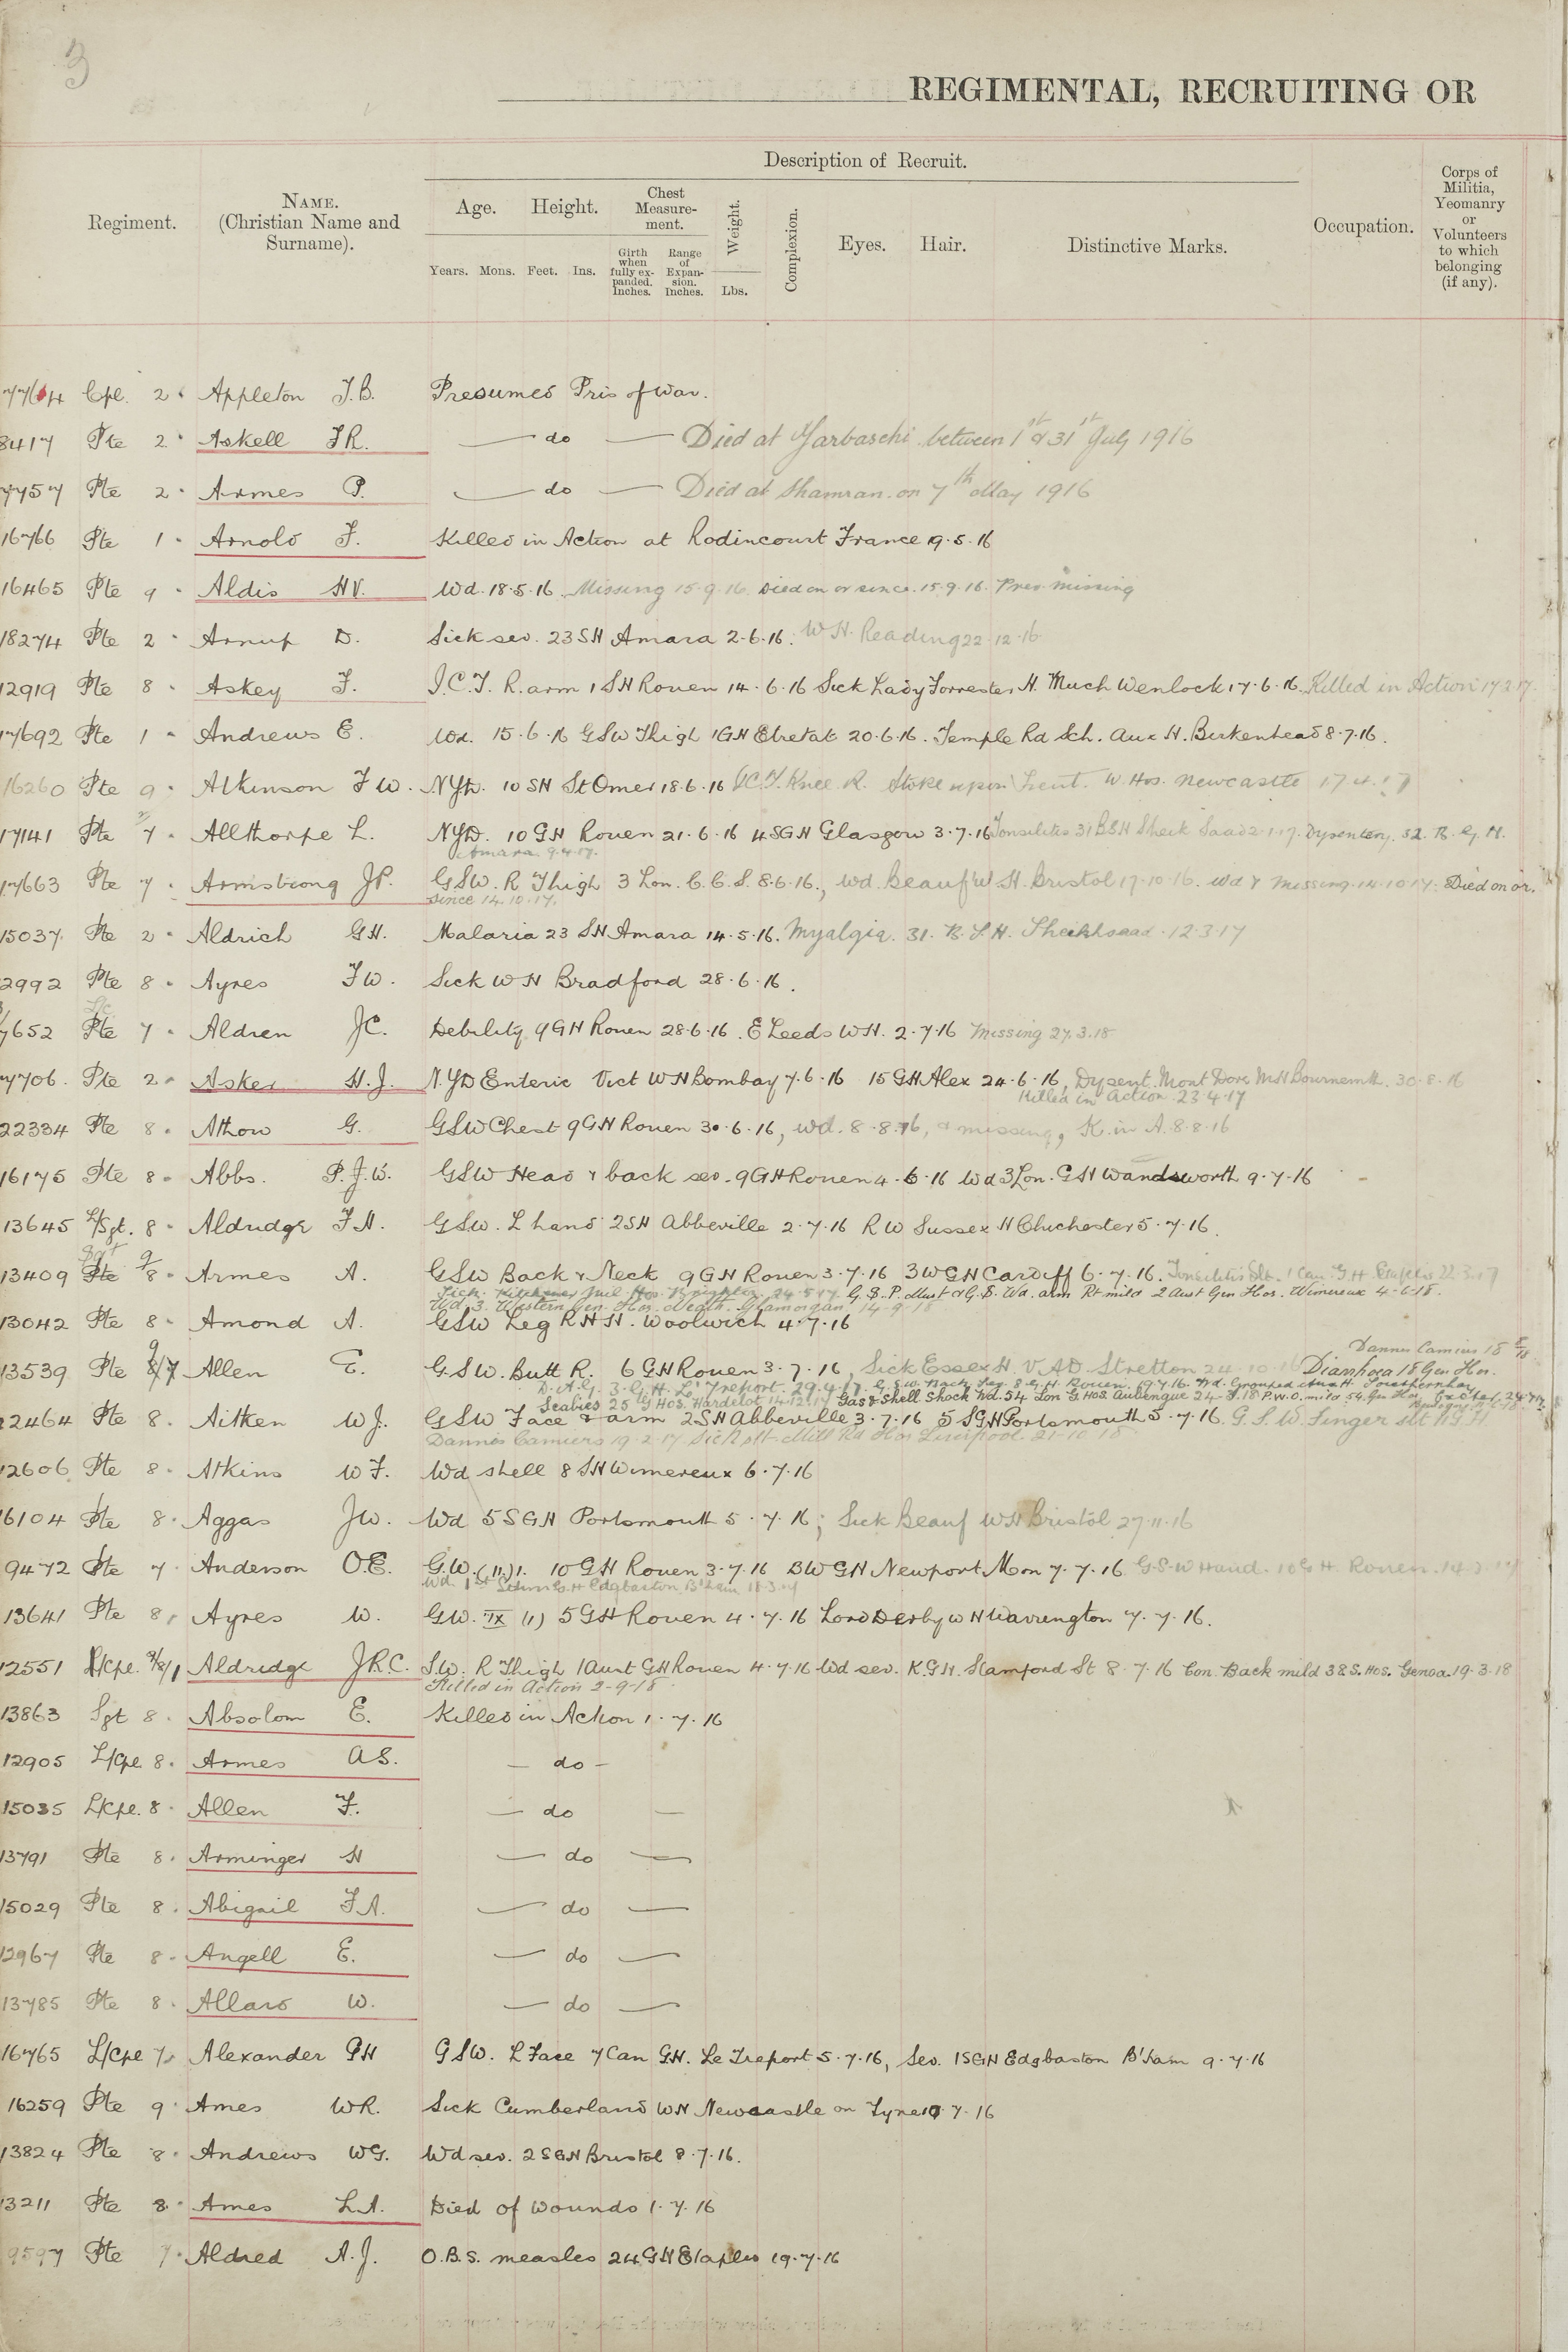 3
REGIMENTAL, RECRUITING OR
Description of Recruit.
Regiment.
NAME.
(Christian Name and
Surname).
Age.
Height.
Chest
Measure-
ment.
Weight.
Complexion.
Eyes.
Hair.
Distinctive Marks.
Occupation.
Corps of
Militia,
Yeomanry
or
Volunteers
to which
belonging
(if any).
Years. Mons. Feet. Ins.
Girth
when
fully ex-
panded.
Inches.
Range
of
Expan-
sion.
Inches.
Lbs.
Cpl. 2 Appleton J.B. Presumed Pris of War.
8417 Pte 2 Askell F R. — do — Died at between 1st & 31st July 1916
7757 Pte 2 Armes P. — do — Died at Shamran on 7th May 1916
16766 Pte 1 Arnold F. Killed in Action at Rodincourt France 19.5.16
16465 Pte 9 Aldis H V. Wd. 18.5.16. Missing 15.9.16 Died on or since 15.9.16. Prev missing
18274 Pte 2 Arnup D. Sick sev. 23 SH Amara 2.6.16. W H. Reading 22.12.16
12919 Pte 8 Askey F. I.C.T. R. arm 1 SH Rouen 14.6.16 Sick Lady Forrester H. Much Wenlock 17.6.16. Killed in Action 17.2.17.
17692 Pte 1 Andrews E. Wd. 15.6.16 GSW Thigh 1GH Etretat 20.6.16. Temple Rd Sch. Aux H. Birkenhead 8.7.16.
16260 Pte 9 Atkinson F W. NYD. 10 SH St Omer 18.6.16 I.C.T. Knee R. Stoke upon Trent. W. Hos. Newcastle 17.4.17
17141 Pte 7 Allthorpe L. NYD. 10 GH Rouen 21.6.16 4SGH Glasgow 3.7.16 Tonsilitis 31 BSH Sheik Saad 2.1.17. Dysentery. 32. B. G. H.
Amara 9.4.17.
17663 Pte 7 Armstrong J P. GSW. R Thigh 3 Lon. C.C.S. 8.6.16., Wd. Beauf W. H. Bristol 17.10.16. Wd & Missing 14.10.17. Died on or.
since 14.10.17.
15037 Pte 2 Aldrich G H. Malaria 23 SH Amara 14.5.16. Myalgia. 31. B. S. H. Sheikhsaad 12.3.17
2992 Pte 8 Ayres F W. Sick W H Bradford 28.6.16.
L/c
7652 Pte 7 Aldren J C. Debility 9 GH Rouen 28.6.16. E Leeds W H. 2.7.16 Missing 27.3.18
7706. Pte 2 Asker H. J. N.Y.D Enteric Vict W H Bombay 7.6.16 15 GH Alex 24.6.16, Dysent. Mont Dore MH Bournemth. 30.8.16
Killed in action 23.4.17
22334 Pte 8 Athow G. GSW Chest 9 GH Rouen 30.6.16, Wd. 8.8.16, & missing, K. in A. 8.8.16
16175 Pte 8 Abbs. P. J. W. GSW Head & back sev. 9 GH Rouen 4.6.16 Wd 3 Lon. GH Wandsworth 9.7.16
13645 L/Sgt. 8 Aldridge F H. GSW. L hand 2SH Abbeville 2.7.16 R W Sussex H Chichester 5.7.16.
Sgt 9
13409 Pte 8 Armes A. GSW Back & Neck 9 GH Rouen 3.7.16 3 W GH Cardiff 6.7.16. Tonsilitis 1 Can. G. H. Etaples 22.3.17
Sick. Kitchener Mil. Hos. Brighton 24.5.17 G. S. Wd. arm Rt mild 2 Aust Gen Hos. Wimereux 4-6-18.
Wd. 3. Western Gen. Hos. Neath. Glamorgan 14-9-18
13042 Pte 8 Amond A. GSW Leg R H H. Woolwich 4.7.16
Dannes Camiers 18
13539 Pte 8/7 Allen E. G.S.W. Butt R. 6 GH Rouen 3.7.16, Sick Essex H V A D. Stretton 24.10.16 Diarrhoea 18 Gen. Hos.
D.A.H. 3. G. H. Le Treport. 29.4.17. G.S.W. Back, Leg. 8. G. H. Rouen
Scabies 25 G Hos. Hardelot 14.12.17 Gas & Shell Shock Wd. 54 Lon G Hos. Aubengue
12464 Pte 8. Aitken W J. GSW Face & arm 2 SH Abbeville 3.7.16 5 SGH Portsmouth 5.7.16. G. S. W. Finger slt
Dannes Camiers 19.2.17 Sick slt. Mill Rd Hos Liverpool. 21-10-18
12606 Pte 8 Atkins W F. Wd shell 8 SH Wimereux 6.7.16
16104 Pte 8 Aggas J W. Wd 5 SGH Portsmouth 5.7.16; Sick Beauf W H Bristol 27.11.16
9472 Pte 7 Anderson O.E. G.W. (11) 1. 10 GH Rouen 3.7.16 3W GH Newport Mon 7.7.16 G.S.W Hand. 10 G H. Rouen.
Wd. 1st Southern G. H Edgbaston B'ham 18.3.17
13641 Pte 8 Ayres W. GW. IX (1) 5 GH Rouen 4.7.16 Lord Derby W H Warrington 7.7.16.
12551 L/Cpl. 9/8/1 Aldridge J R.C. S.W. R Thigh 1 Aust GH Rouen 4.7.16 Wd sev. K.G.H. Stamford St 8.7.16 Con. Back mild 38 S. Hos. Genoa. 19.3.18
Killed in Action 2-9-18
13863 Sgt 8 Absolom E. Killed in Action 1.7.16
12905 L/Cpl. 8 Armes A S. — do —
15035 L/Cpl. 8 Allen F. — do —
13791 Pte 8 Arminger H — do —
15029 Pte 8 Abigail F A. — do —
12967 Pte 8 Angell E. — do —
13785 Pte 8 Allard W. — do —
16765 L/Cpl 7 Alexander G H GSW. L Face 7 Can GH. Le Treport 5.7.16, Sev. 1SGH Edgbaston B'ham 9.7.16
16259 Pte 9 Ames W R. Sick Cumberland W H Newcastle on Tyne 10.7.16
13824 Pte 8 Andrews W G. Wd sev. 2 SGH Bristol 8.7.16.
13211 Pte 8 Ames L A. Died of wounds 1.7.16
9597 Pte 7 Aldred A. J. O.B.S. measles 24 GH Etaples 19.7.16